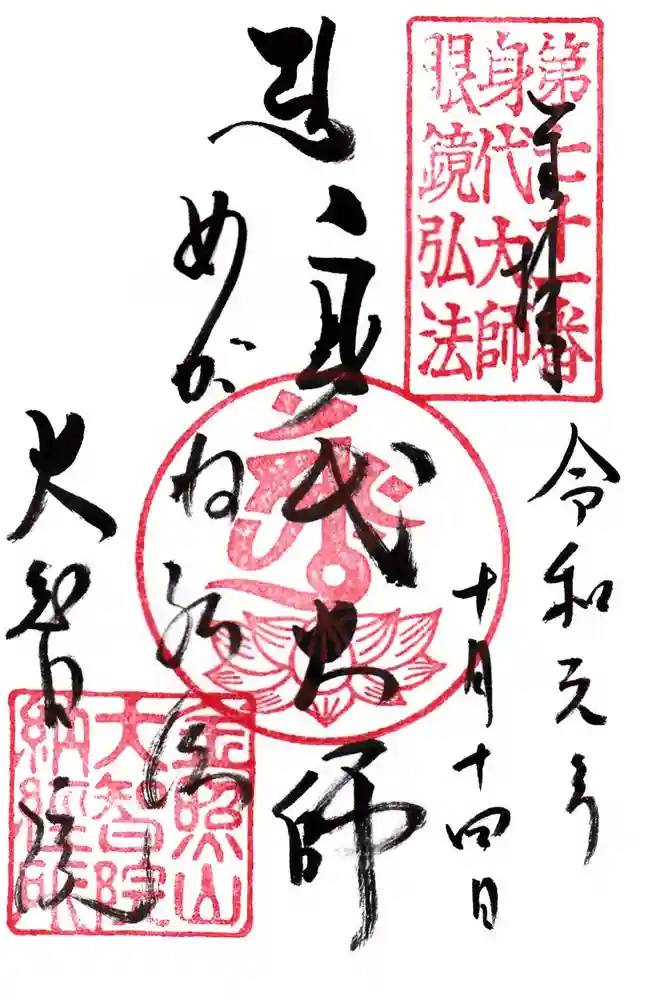 第七十一番
身代大師
眼鏡弘法
奉拝
令和元年
十月十四日
身代大師
めがね弘法
大智院
金照山
大智院
納經